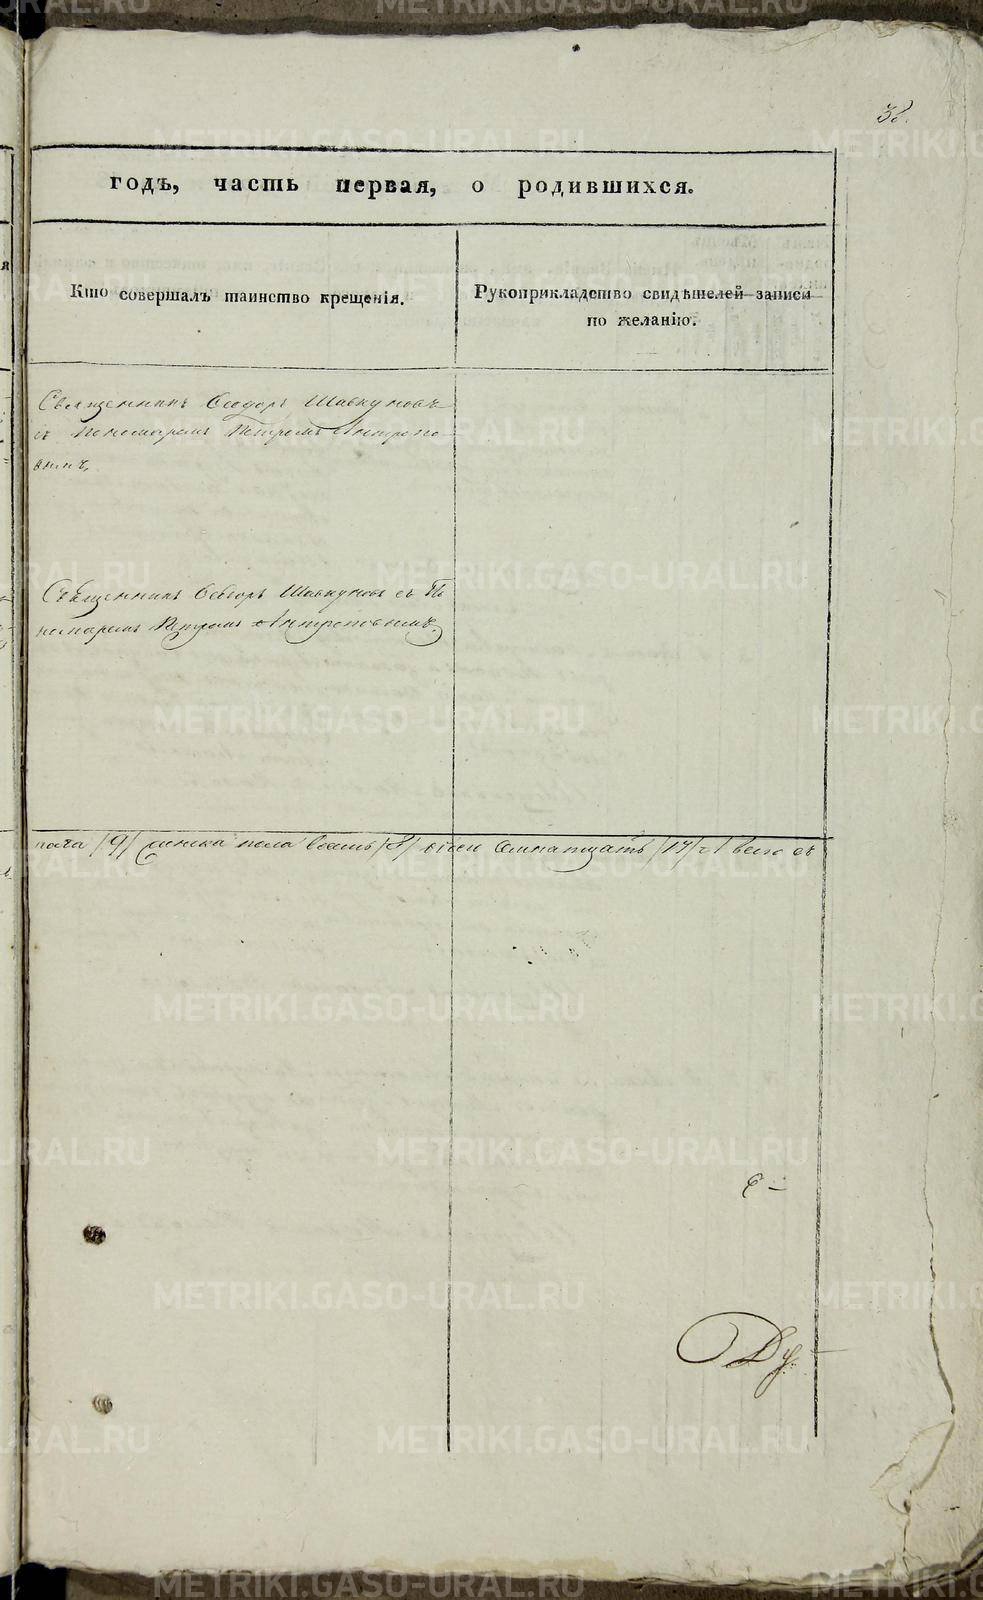 38.
годъ, часть первая, о родившихся.
Кто совершалъ таинство крещенія.
Рукоприкладство свидѣтелей записи
по желанію.
Священникъ Ѳеодоръ Шавкуновъ
съ Пономаремъ Петромъ Антропо-
вымъ,
Священникъ Ѳеодоръ Шавкуновъ съ По
номаремъ Петромъ Антроповымъ.
пола /9/ женска пола восемь /8/ всего семнатцать /17/
Ду-
METRIKI.GASO-URAL.RU